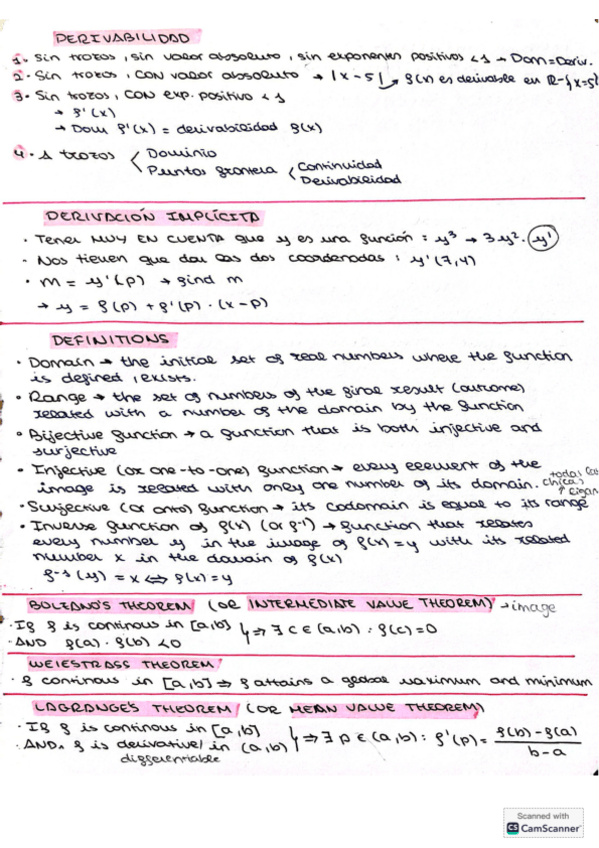 DERIVABILIDAD
1. Sin trozos, sin valor absoluto, sin exponentes positivos < 1 → Dom = Deriv.
2. Sin trozos, CON valor absoluto → |x-5| → f(x) es derivable en R-{x=5}
3. Sin trozos, CON exp. positivo < 1
→ f'(x)
→ Dom f'(x) = derivabilidad f(x)
4. A trozos < Dominio
Puntos frontera < Continuidad
Derivabilidad
DERIVACIÓN IMPLÍCITA
· Tener MUY EN CUENTA que y es una función: y³ → 3y². y'
· Nos tienen que dar las dos coordenadas: y'(7,4)
· m = y'(p) → find m
→ y = f(p) + f'(p) · (x-p)
DEFINITIONS
· Domain → the initial set of real numbers where the function
is defined, exists.
· Range → the set of numbers of the final result (outcome)
related with a number of the domain by the function
· Bijective function → a function that is both injective and
surjective
· Injective (or one-to-one) function → every element of the
image is related with only one number of its domain.
todas las
chicas
↑
· Surjective (or onto) function → its codomain is equal to its range
· Inverse function of f(x) (or f⁻¹) → function that relates
every number y in the image of f(x)=y with its related
number x in the domain of f(x)
f⁻¹(y) = x ⟺ f(x) = y
BOLZANO'S THEOREM (OR INTERMEDIATE VALUE THEOREM) → image
· If f is continous in [a,b] } ⇒ ∃ c ∈ (a,b) : f(c)=0
· AND f(a) · f(b) < 0
WEIESTRASS THEOREM
· f continous in [a,b] ⇒ f attains a global maximum and minimum
LAGRANGE'S THEOREM (OR MEAN VALUE THEOREM)
· If f is continous in [a,b] } ⇒ ∃ p ∈ (a,b) : f'(p) = f(b)-f(a) / b-a
· AND f is derivative/ in (a,b)
differentiable
Scanned with
CS CamScanner